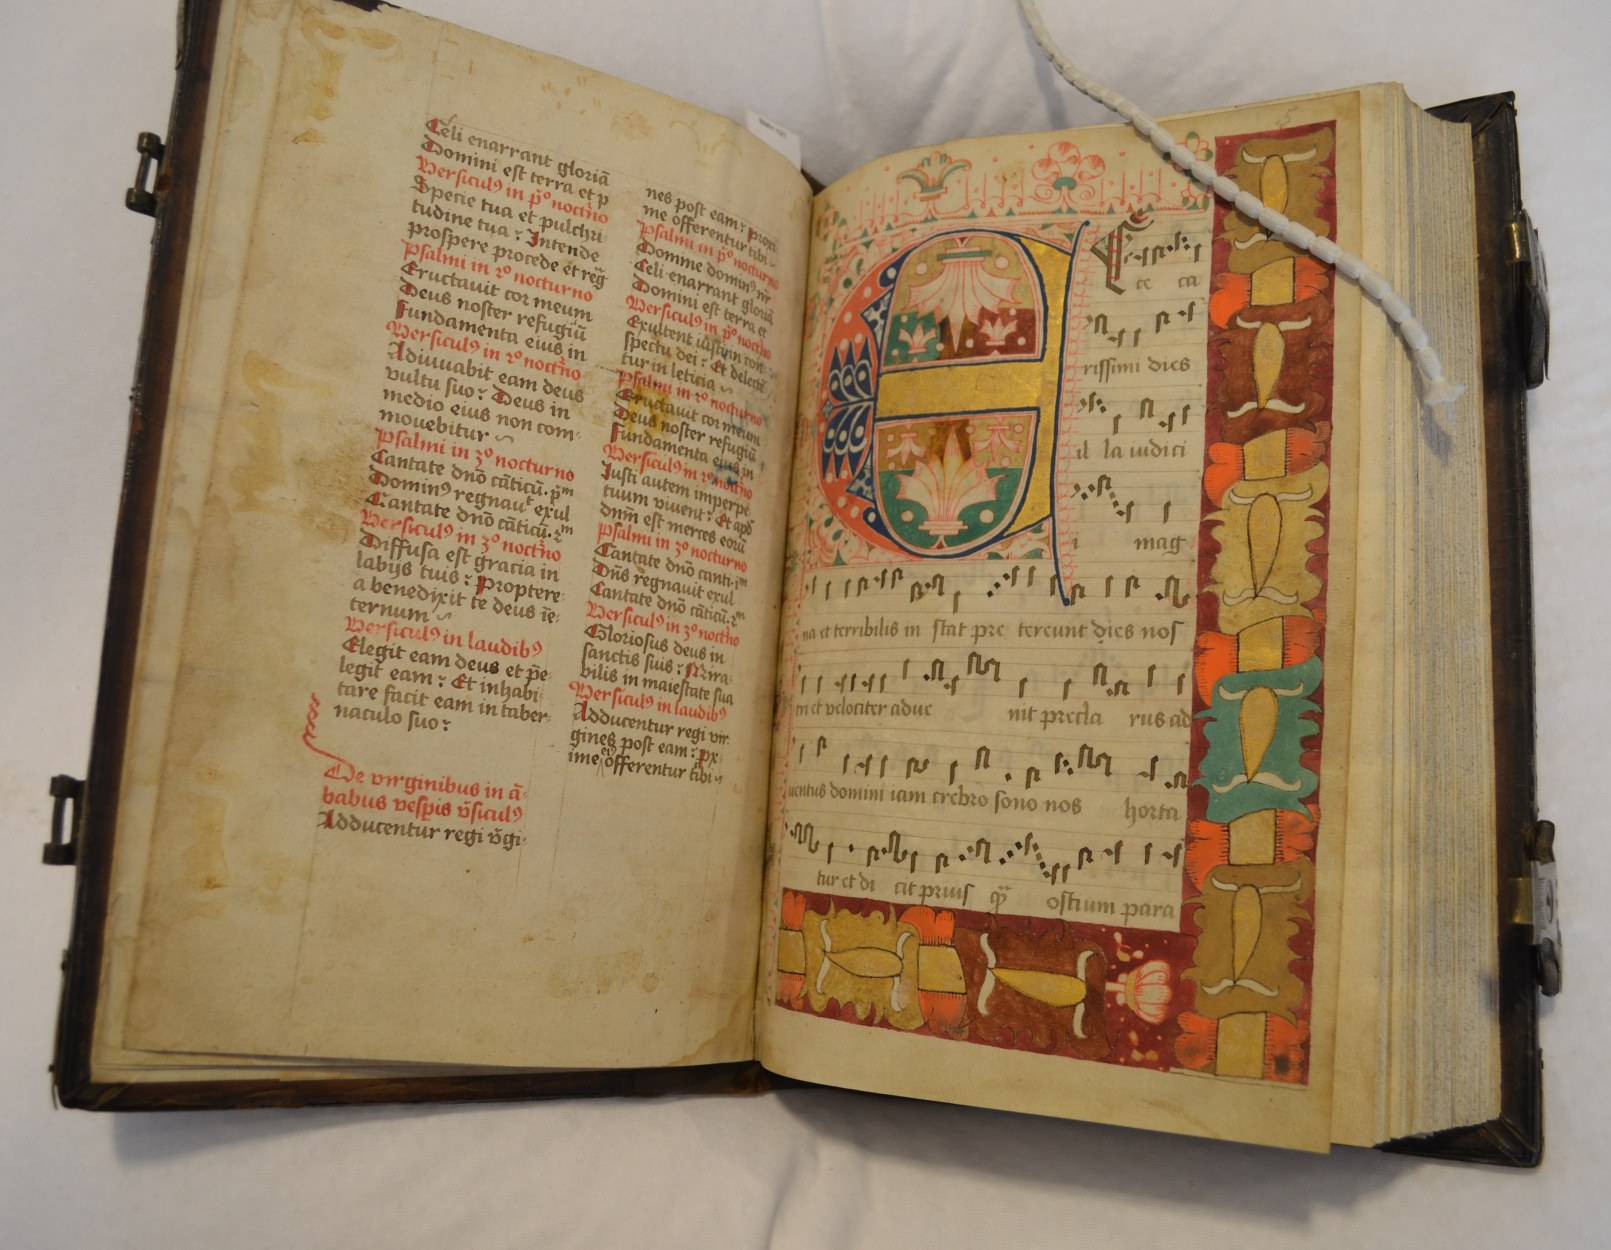 Celi enarrant gloriā
Domini est terra et p
Versiculꝰ in p̄º noct̄no
Specie tua et pulchri
tudine tua : Intende
prospere procede et reg̃
Psalmi in 2º nocturno
Eructauit cor meum
Deus noster refugiū
Fundamenta eius in
Versiculꝰ in 2º noct̄no
Adiuuabit eam deus
vultu suo : Deus in
medio eius non com
mouebitur
Psalmi in 3º nocturno
Cantate dnō cāticū. p̄m
Dominꝰ regnauᵗ exul
Cantate dnō cāticū. 2m
Versiculꝰ in 3º noct̄no
Diffusa est gracia in
labijs tuis : Proptere
a benedixit te deus īe
ternum
Versiculꝰ in laudibꝰ
Elegit eam deus et p̄e
legit eam : Et inhabi
tare facit eam in taber
naculo suo :
De virginibus in ā
babus vesp̱is v̄siculꝰ
Adducentur regi v̄gi
nes post eam : proxi
me offerentur tibi
Psalmi in p̄º nocturno
Domine dominꝰ nr̄
Celi enarrant gloriā
Domini est terra et
Versiculꝰ in p̄º noct̄no
Exultent iusti in con
spectu dei : Et delectē
tur in leticia
Psalmi in 2º nocturno
Eructauit cor meum
Deus noster refugiū
Fundamenta eius in
Versiculꝰ in 2º noct̄no
Justi autem imperpe
tuum viuent : Et apḋ
dnm̄ est merces eorū
Psalmi in 3º nocturno
Cantate dnō canti. im
Dn̄s regnauit exul
Cantate dnō cāticū. 2m
Versiculꝰ in 3º noct̄no
Gloriosus deus in
sanctis suis : Mira
bilis in maiestate sua
Versiculꝰ in laudibꝰ
Adducentur regi vir
gines post eam : px
īme eiꝰ offerentur tibi
E Cce ca
rissimi dies
il la iudici
i mag
na et terribilis in stat pre tereunt dies nos
tri et velociter adue nit precla rus ad
uentus domini iam crebro sono nos horta
tur et di cit prius qȝ ostium para